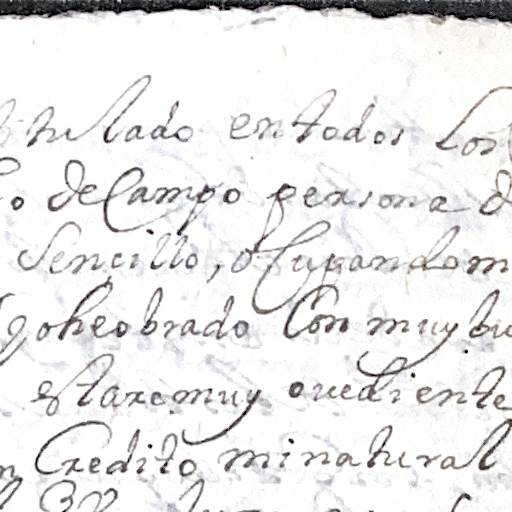 tulado en todos los
de Campo persona d
sencillo, o Cupandom
yo he obrado Con muy bu
estare muy ovediente
Credito mi natural